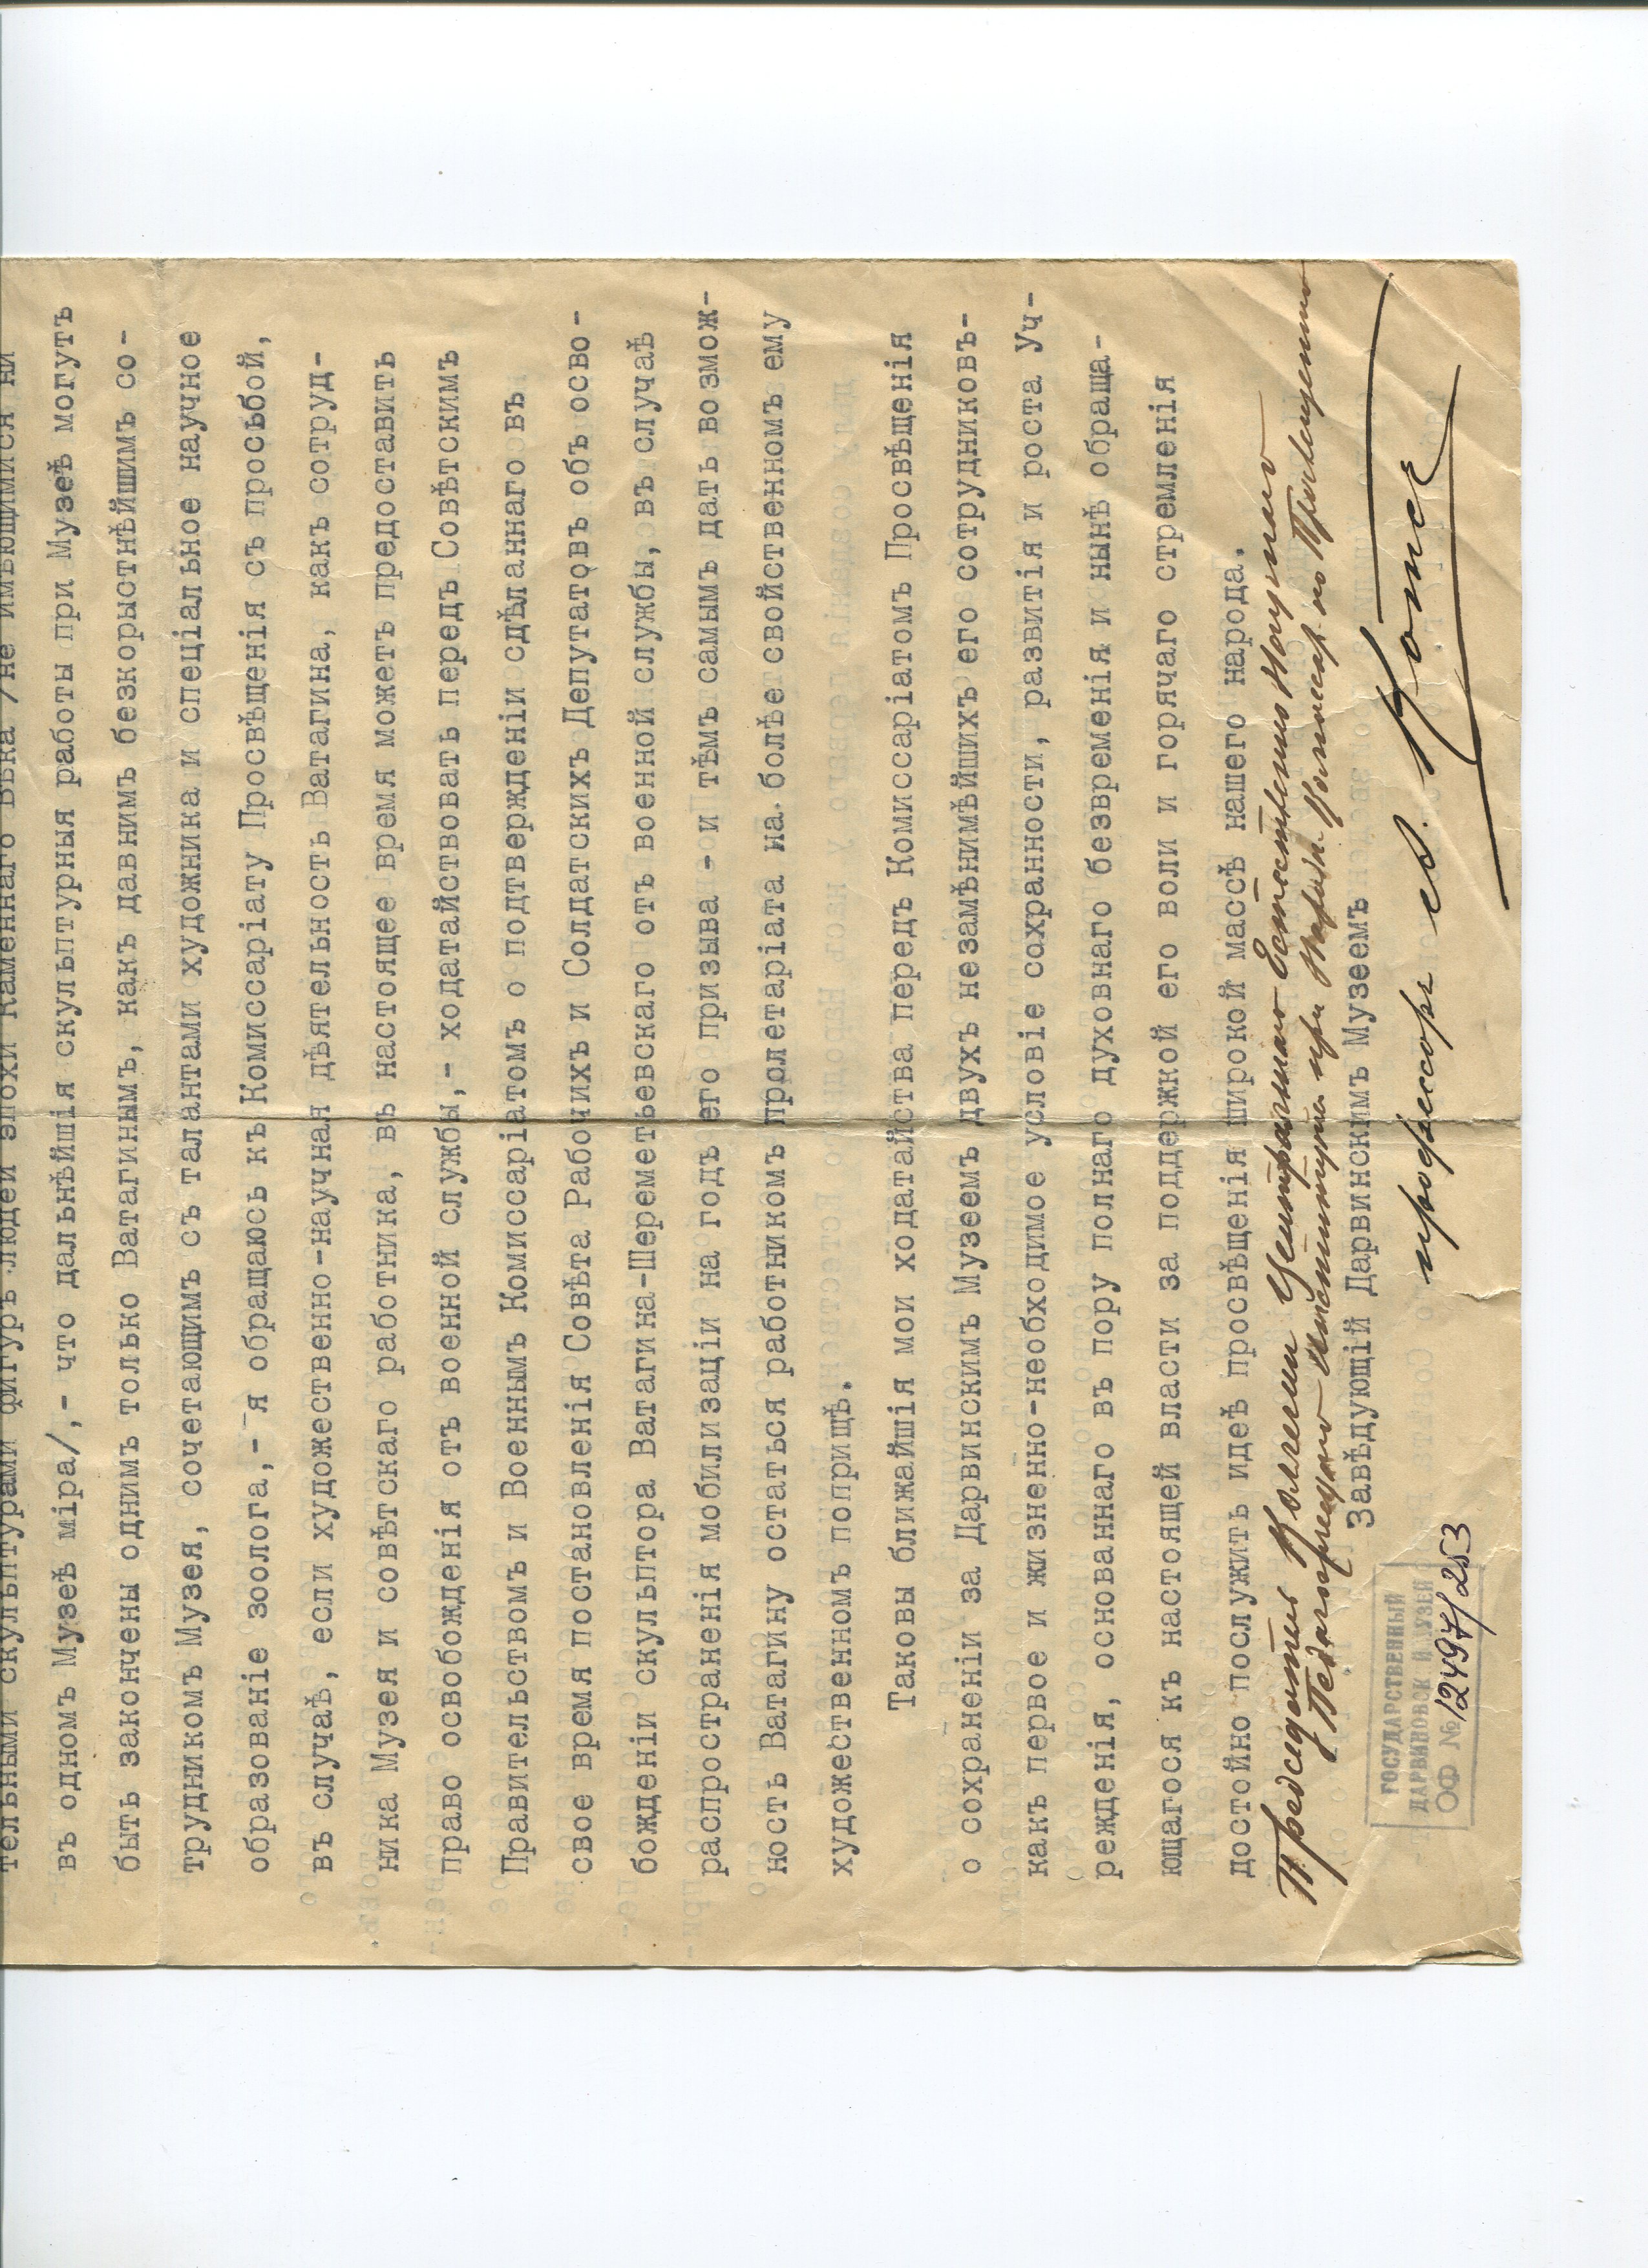 тельными скульптурами фигуръ людей эпохи каменнаго вѣка /не имѣющимися ни
въ одномъ Музеѣ міра/,- что дальнѣйшія скульптурныя работы при Музеѣ могутъ
быть закончены однимъ только Ватагинымъ, какъ давнимъ безкорыстнѣйшимъ со-
трудникомъ Музея, сочетающимъ съ талантами художника и спеціальное научное
образованіе зоолога,- я обращаюсь къ Комиссаріату Просвѣщенія съ просьбой,
въ случаѣ, если художественно-научная дѣятельность Ватагина, какъ сотруд-
ника Музея и совѣтскаго работника, въ настоящее время можетъ предоставить
право освобожденія отъ военной службы,- ходатайствовать передъ Совѣтскимъ
Правительствомъ и Военнымъ Комиссаріатомъ о подтвержденіи сдѣланнаго въ
свое время постановленія Совѣта Рабочихъ и Солдатскихъ Депутатовъ объ осво-
божденіи скульптора Ватагина-Шереметьевскаго отъ военной службы, въ случаѣ
распространенія мобилизаціи на годъ его призыва - и тѣмъ самымъ дать возмож-
ность Ватагину остаться работникомъ пролетаріата на болѣе свойственномъ ему
художественномъ поприщѣ.
Таковы ближайшія мои ходатайства передъ Комиссаріатомъ Просвѣщенія
о сохраненіи за Дарвинскимъ Музеемъ двухъ незамѣнимѣйшихъ его сотрудниковъ-
какъ первое и жизненно-необходимое условіе сохранности, развитія и роста Уч-
режденія, основаннаго въ пору полнаго духовнаго безвременія и нынѣ обраща-
ющагося къ настоящей власти за поддержкой его воли и горячаго стремленія
достойно послужить идеѣ просвѣщенія широкой массѣ нашего народа.
Предсѣдатель Коллегіи Центральнаго Естественно Научнаго
Педагогическаго Института при Народн. Комиссар. по Просвещению
Завѣдующій Дарвинскимъ Музеемъ
профессоръ А. Котсъ
ГОСУДАРСТВЕННЫЙ
ДАРВИНОВСК. МУЗЕЙ
ОФ № 12497/253